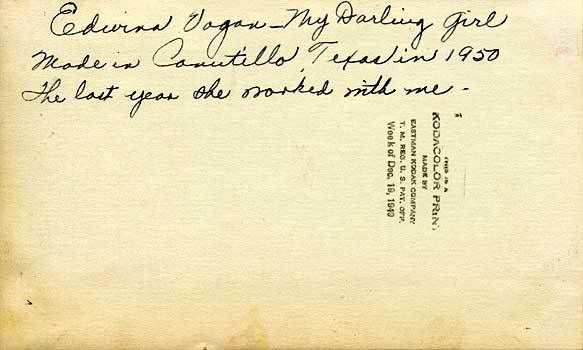 Edwina Vogan - My Darling Girl
Made in Canutillo, Texas in 1950
The last year she worked with me -
THIS IS A
KODACOLOR PRINT
MADE BY
EASTMAN KODAK COMPANY
T. M. REG. U. S. PAT. OFF.
Week of Dec. 19, 1949